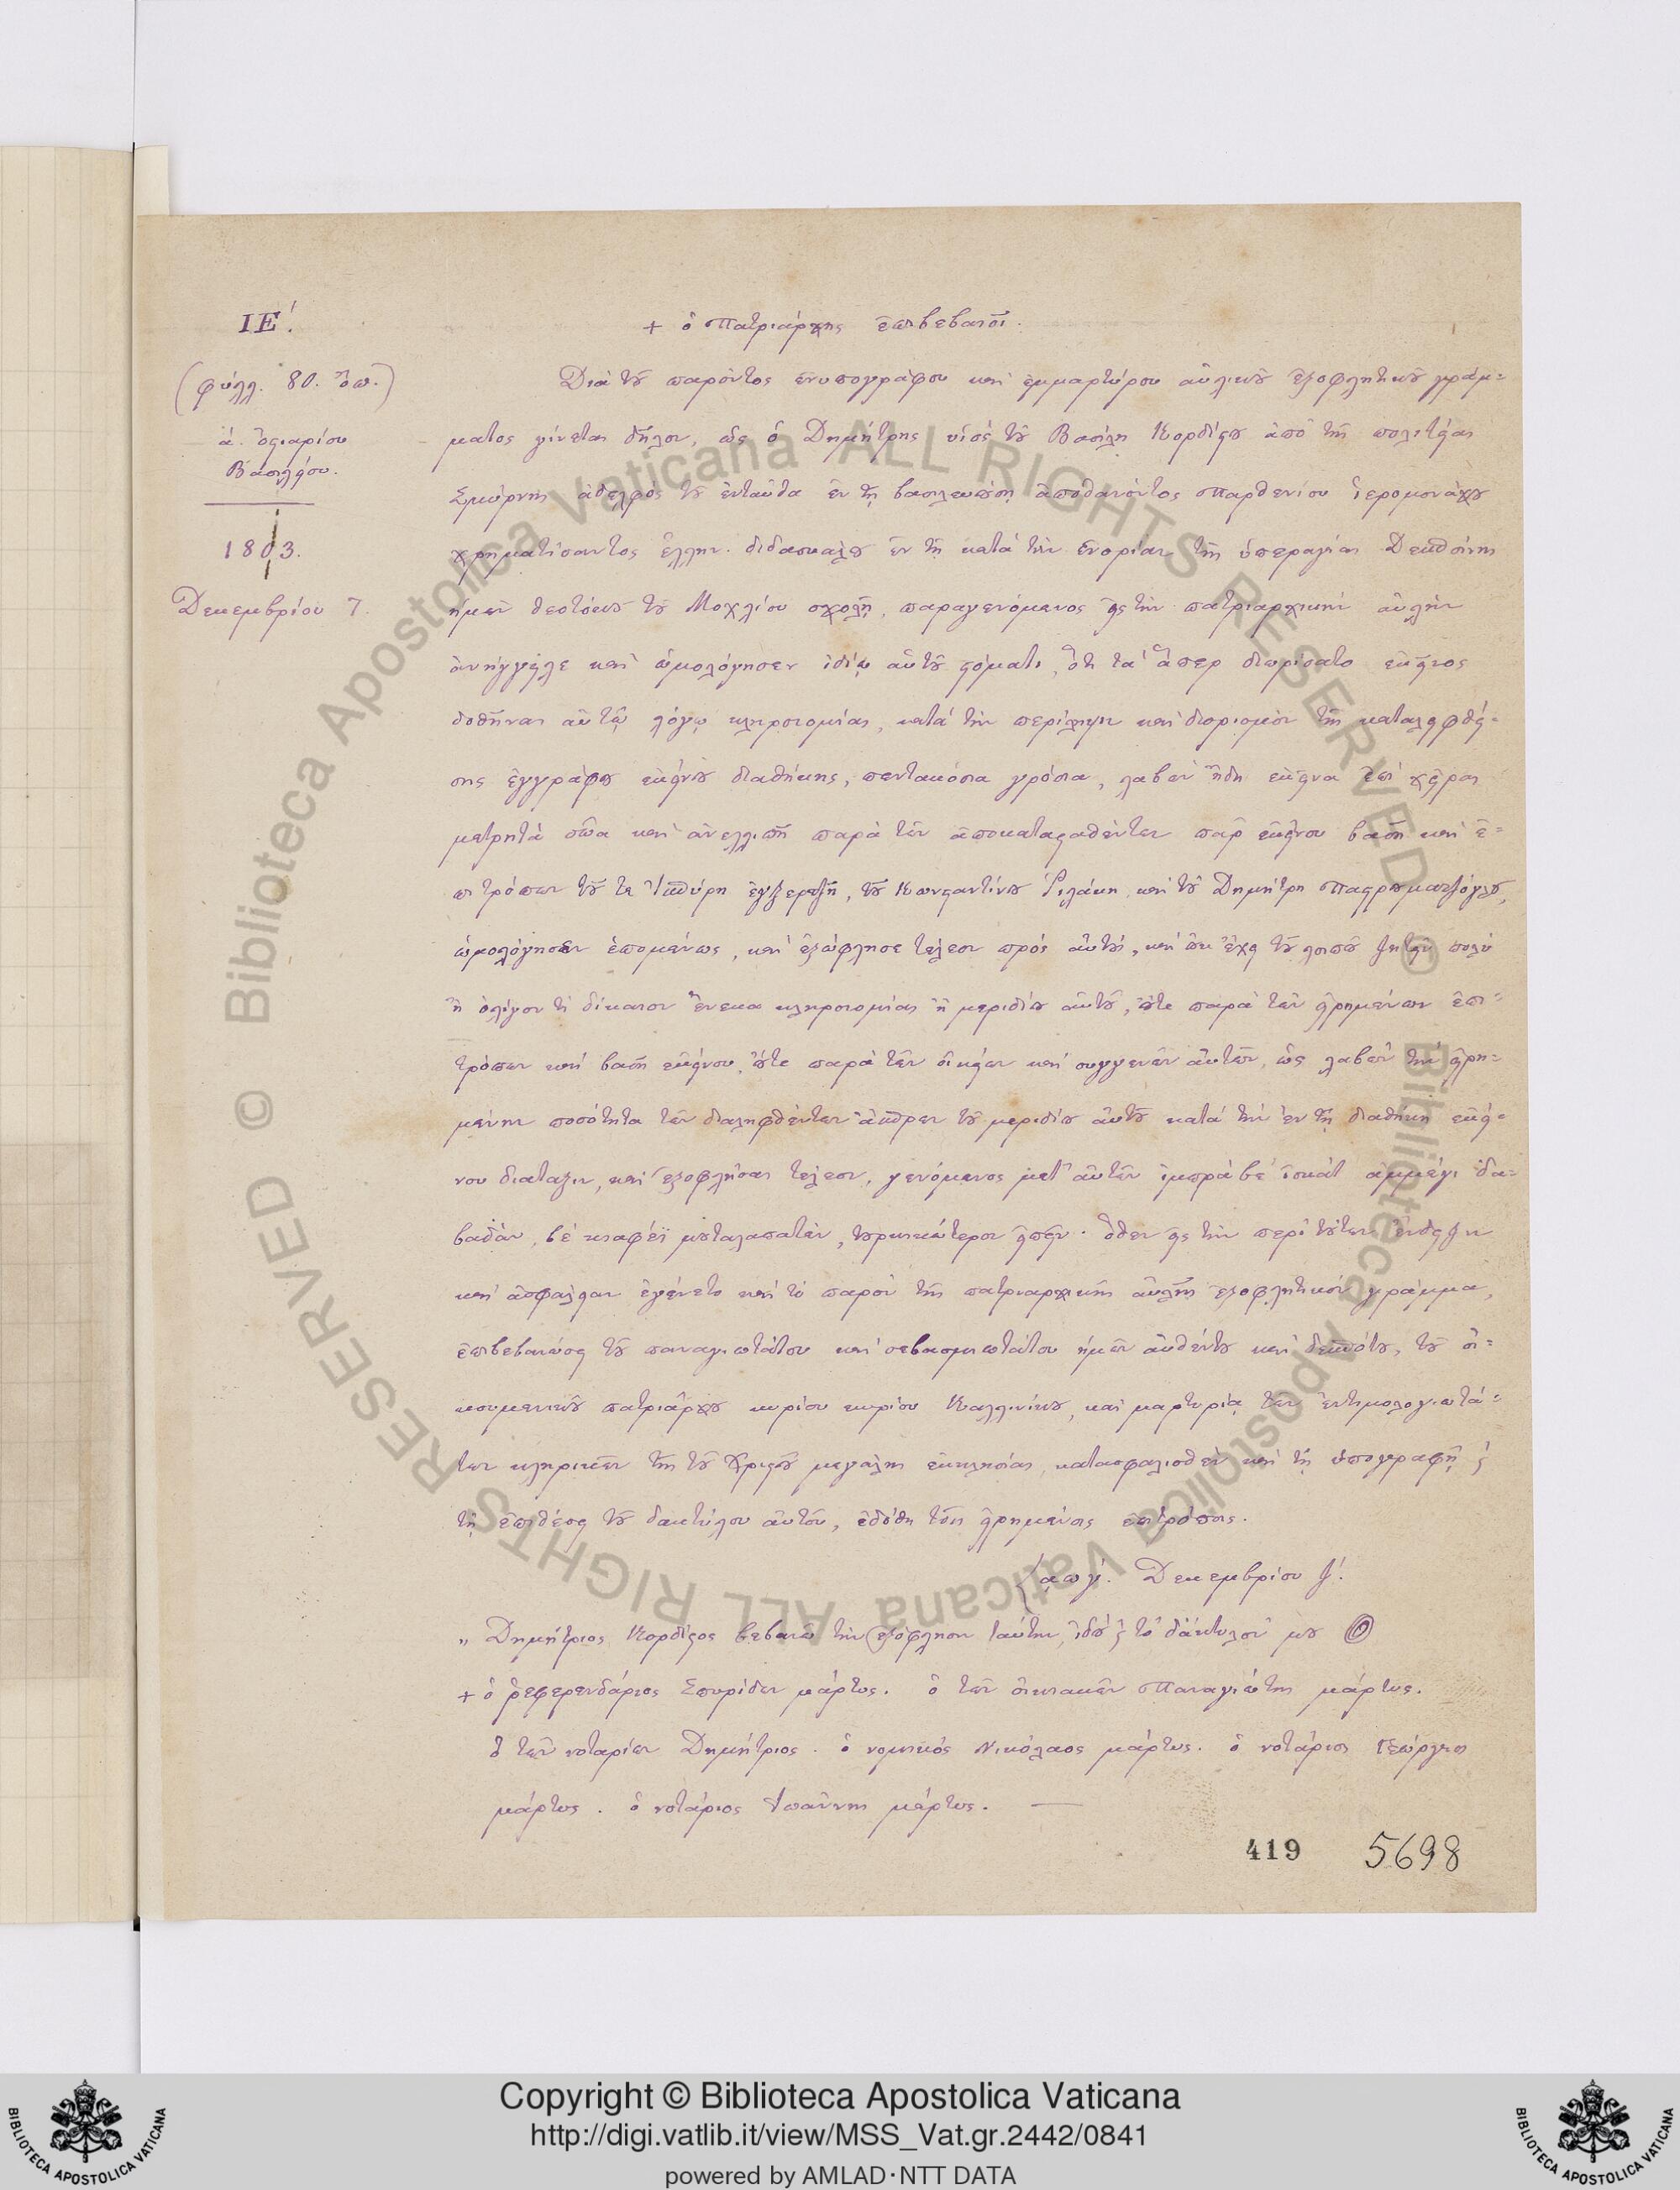 ΙΕ΄.
(φύλλ. 80. ὄπ.)
ἀ. ὀστιαρίου
Βασιλείου.
1803.
Δεκεμβρίου 7.
+ ὁ Πατριάρχης ἐπιβεβαιοῖ.
Διὰ τοῦ παρόντος ἐνυπογράφου καὶ ἐμμαρτύρου αὐλικοῦ ἐξοφλητικοῦ γράμ=
ματος γίνεται δῆλον, ὡς ὁ Δημήτρης υἱός τοῦ Βασίλη Κορδίστου ἀπὸ τῆς πολιτείας
Σμύρνης ἀδελφός τοῦ ἐνταῦθα ἐν τῇ βασιλευούσῃ ἀποθανόντος Παρθενίου ἱερομονάχου
χρηματίσαντος ἑλλην. διδασκάλου ἐν τῇ κατὰ τὴν ἐνορίαν τῆς ὑπεραγίας Δεσποίνης
ἡμῶν θεοτόκου τοῦ Μοχλίου σχολῇ, παραγενόμενος εἰς τὴν πατριαρχικὴν αὐλὴν
ἀνήγγειλε καὶ ὡμολόγησεν ἰδίῳ αὐτοῦ στόματι, ὅτι τὰ ἅπερ διωρίσατο ἐκεῖνος
δοθῆναι αὐτῷ λόγῳ κληρονομίας, κατὰ τὴν περίληψιν καὶ διορισμὸν τῆς καταλειφθεί=
σης ἐγγράφου ἐκείνου διαθήκης, πεντακόσια γρόσια, λαβὼν ἤδη ἐκεῖνα ἐπὶ χεῖρας
μετρητὰ σῶα καὶ ἀνελλιπῆ παρὰ τῶν ἀποκατασταθέντων παρ' ἐκείνου βασῆ καὶ ἐ=
πιτρόπων τοῦ τε τοῦ Κωνσταντίνου καὶ τοῦ Δημήτρη
ὡμολόγησεν ἑπομένως, καὶ ἐξώφλησε τέλεον πρός αὐτούς, καὶ οὐκ ἔχει τοῦ λοιποῦ ζητεῖν πολύ
ἢ ὀλίγον τι δίκαιον ἕνεκα κληρονομίας ἢ μεριδίου αὐτοῦ, οὔτε παρὰ τῶν εἰρημένων ἐπι=
τρόπων καὶ βασῆ ἐκείνου, οὔτε παρὰ τῶν οἰκείων καὶ συγγενῶν αὐτῶν, ὡς λαβὼν τὴν εἰρη=
μένην ποσότητα τῶν διαληφθέντων ἄσπρων τοῦ μεριδίου αὐτοῦ κατὰ τὴν ἐν τῇ διαθήκῃ ἐκεί=
νου διάταξιν, καὶ ἐξοφλήσας τέλεον, γενόμενος μετ' αὐτῶν ἰμπρὰ βὲ ἰσκὰτ ἀμμέγι δα=
βαδὰν, βὲ κιαφέϊ μουταλαπατὲν, τουρκικώτερον εἰπεῖν. ὅθεν εἰς τὴν περὶ τούτων ἔνδειξιν
καὶ ἀσφάλειαν ἐγένετο καὶ τὸ παρὸν τῆς πατριαρχικῆς αὐλῆς ἐξοφλητικὸν γράμμα,
ἐπιβεβαιώσει τοῦ παναγιωτάτου καὶ σεβασμιωτάτου ἡμῶν αὐθέντου καὶ δεσπότου, τοῦ οἰ=
κουμενικοῦ πατριάρχου κυρίου κυρίου Καλλινίκου, καὶ μαρτυρίᾳ τῶν ἐντιμολογιωτά=
των κληρικῶν τῆς τοῦ Χριστοῦ μεγάλης ἐκκλησίας, κατασφαλισθὲν καὶ τῇ ὑπογραφῇ ϗ
τῇ ἐπιθέσει τοῦ δακτύλου αὐτοῦ, ἐδόθη τοῖς εἰρημένοις ἐπιτρόποις.
͵αωγ΄. Δεκεμβρίου ζ΄.
" Δημήτριος Κορδίστος βεβαιῶ τὴν ἐξόφλησιν ταύτην, ἰδοὺ ϗ τὸ δάκτυλόν μου
+ ὁ ῥεφερενδάριος Σπυρίδων μάρτυς. ὁ τῶν οἰκιακῶν Παναγιώτης μάρτυς.
ὁ τῶν νοταρίων Δημήτριος. ὁ νομικός Νικόλαος μάρτυς. ὁ νοτάριος Γεώργιος
μάρτυς. ὁ νοτάριος Ἰωάννης μάρτυς. —
419 5698
© Biblioteca Apostolica Vaticana ALL RIGHTS RESERVED
© Biblioteca Apostolica Vaticana ALL RIGHTS RESERVED
BIBLIOTECA APOSTOLICA VATICANA
Copyright © Biblioteca Apostolica Vaticana
http://digi.vatlib.it/view/MSS_Vat.gr.2442/0841
powered by AMLAD·NTT DATA
BIBLIOTECA APOSTOLICA VATICANA